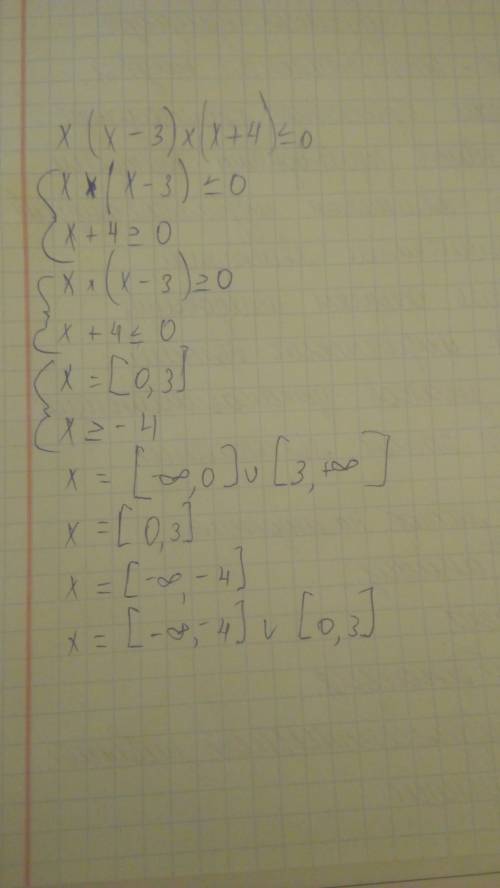 x (x - 3) x (x + 4) ≤ 0
x × (x - 3) ≤ 0
x + 4 ≥ 0
x × (x - 3) ≥ 0
x + 4 ≤ 0
x = [0, 3]
x ≥ - 4
x = [-∞, 0] ∪ [3, +∞]
x = [0, 3]
x = [-∞, -4]
x = [-∞, -4] ∪ [0, 3]